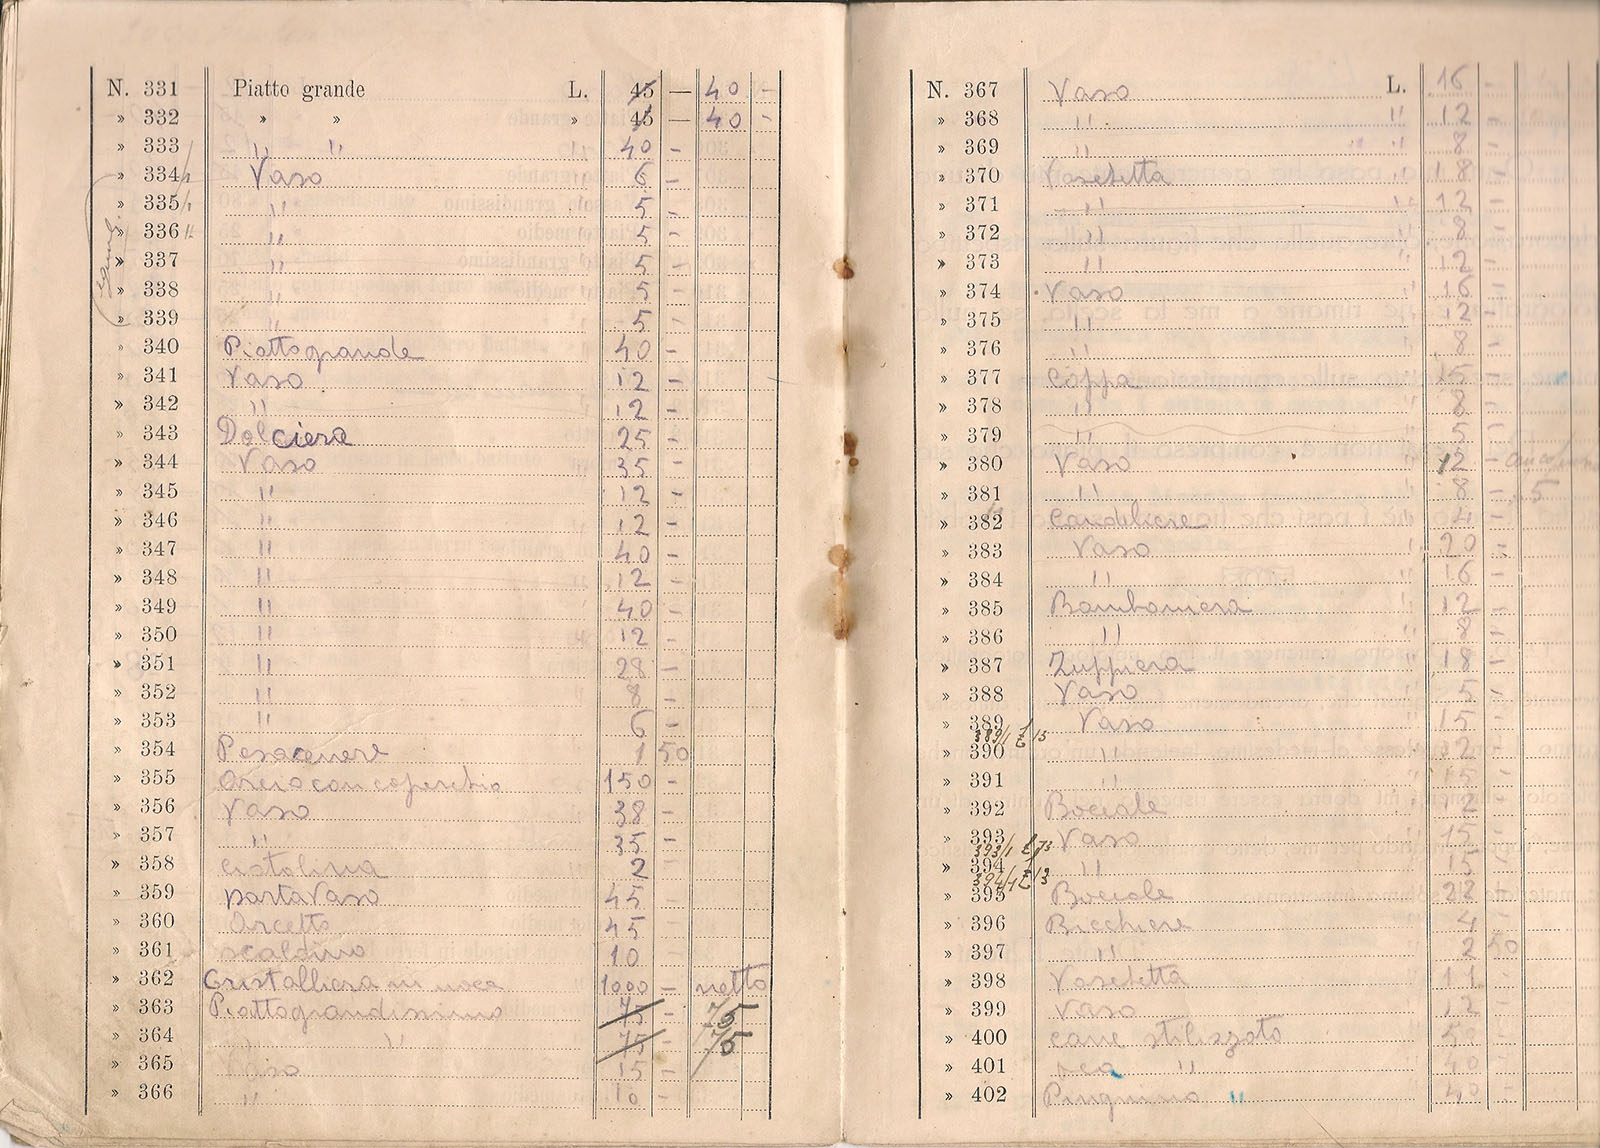 N. 331 Piatto grande L. 45 — 40 -
» 332 » » » 45 — 40 -
» 333 " " 40 -
» 334 Vaso 6 -
» 335 " 5 -
» 336 " 5 -
» 337 " 5 -
» 338 " 5 -
» 339 " 5 -
» 340 Piatto grande 40 -
» 341 Vaso 12 -
» 342 " 12 -
» 343 Dolciera 25 -
» 344 Vaso 35 -
» 345 " 12 -
» 346 " 12 -
» 347 " 40 -
» 348 " 12 -
» 349 " 40 -
» 350 " 12 -
» 351 " 28 -
» 352 " 8 -
» 353 " 6 -
» 354 Posacenere 1 50
» 355 Orcio con coperchio 150 -
» 356 Vaso 38 -
» 357 " 35 -
» 358 ciotolina 2
» 359 portavaso 45 -
» 360 Orcetto 45 -
» 361 scaldino 10 -
» 362 Cristalliera in noce 1000 - netto
» 363 Piatto grandissimo 75 - 75
» 364 " 75 - 75
» 365 Vaso 15 -
» 366 " 10 -
N. 367 Vaso L. 16 -
» 368 " " 12 -
» 369 " " 8 -
» 370 Vaschetta " 18 -
» 371 " " 12 -
» 372 " " 8 -
» 373 " " 12 -
» 374 Vaso " 16 -
» 375 " " 12 -
» 376 " " 8 -
» 377 Coppa " 15 -
» 378 " " 8 -
» 379 " " 5 -
» 380 Vaso " 12 -
» 381 " " 8 - 5
» 382 Candeliere " 4 -
» 383 Vaso " 20 -
» 384 " " 16 -
» 385 Bomboniera " 12 -
» 386 " " 8 -
» 387 Zuppiera " 18 -
» 388 Vaso " 5 -
» 389 Vaso 15 -
389/1 £ 15
» 390 " 12 -
» 391 " 15 -
» 392 Boccale 12 -
» 393 Vaso 15 -
393/1 £ 13
» 394 " 15 -
394/1 £ 13
» 395 Boccale 22 -
» 396 Bicchiere 4 -
» 397 " 2 50
» 398 Vaschetta 11 -
» 399 Vaso 12 -
» 400 cane stilizzato 50 -
» 401 " 40 -
» 402 Pinguino " 40 -